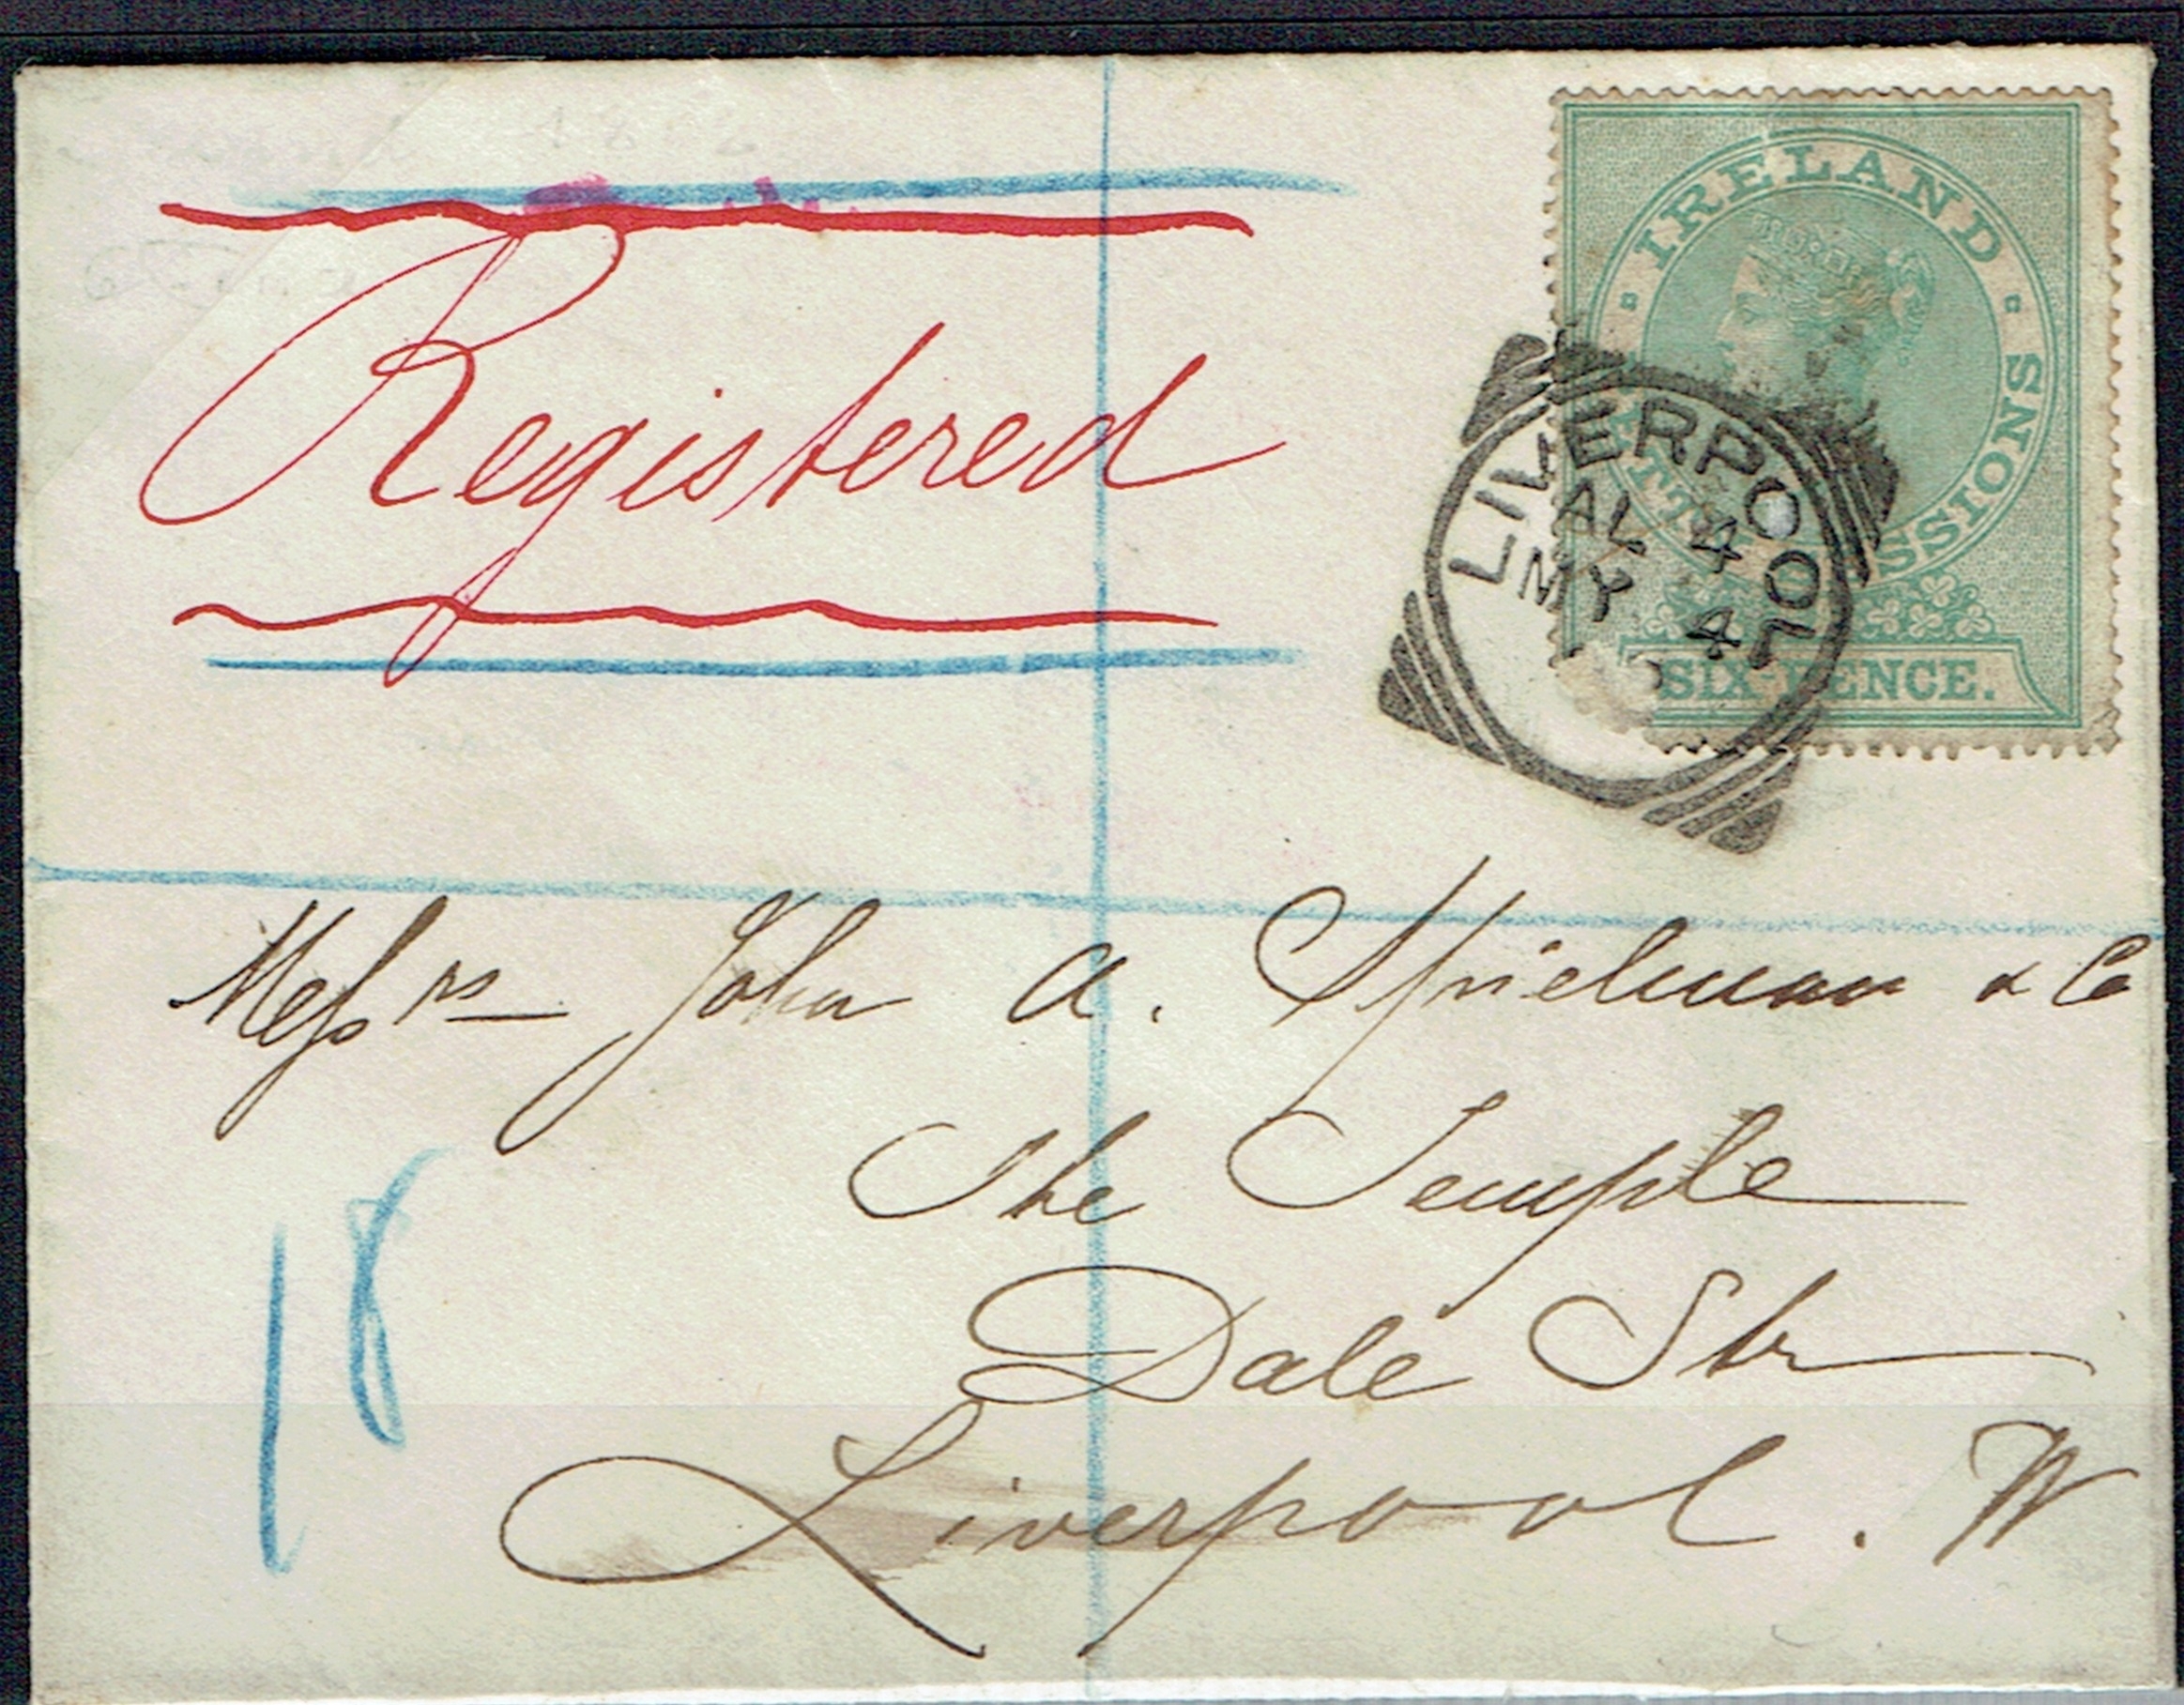 Registered
IRELAND
PETTY SESSIONS
SIX-PENCE.
LIVERPOOL
AL 4
MY 4
Messrs John A. Spielman & Co
The Temple
Dale Str
Liverpool. W
18